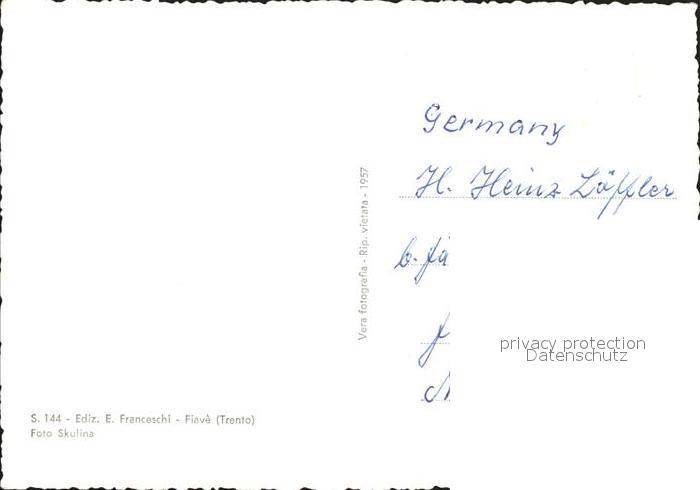 Germany
H. Heinz Löffler
b. Jä
privacy protection
Datenschutz
Vera fotografia - Rip. vietata - 1957
S. 144 - Ediz. E. Franceschi - Fiavè (Trento)
Foto Skulina